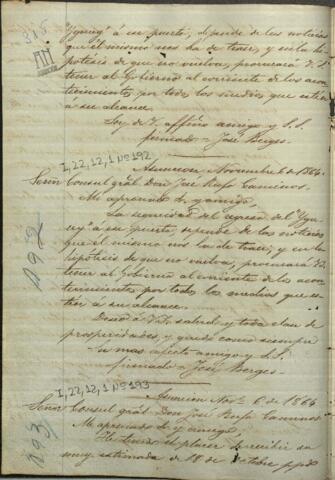 315
Ygurey" á su puerto, depende de las noticias
que el mismo nos ha de traer, y en la hi-
pótesis de que no vuelva, procurará V. S.
tener al Gobierno al corriente de los acon-
tecimientos por todos los medios que esten
á su alcance.
Soy de V. affmo amigo y S. S.
firmado - José Berges.
I,22,12,1 Nº 192
192
Asuncion Noviembre 6 de 1864.
Señor Consul gral. Don José Rufo Caminos.
Mi apreciado S. y amigo,
La seguridad del regreso del "Ygu-
rey" á su puerto, depende de las noticias
que el mismo nos ha de traer, y en la
hipótesis de que no vuelva, procurará Vd.
tener al Gobierno al corriente de los acon-
tecimientos por todos los medios que es-
tén á su alcance.
Deseo á Vd. salud y toda clase de
prosperidades, y quedo como siempre
Su mas afecto amigo y S. S.
firmado - José Berges
I,22,12,1 Nº 193
193
Asuncion Nov. 6 de 1864
Señor Consul gral. Don José Rufo Caminos
Mi apreciado S. y amigo,
He tenido el placer de recibir su
muy estimada de 18 de Octubre ppdo